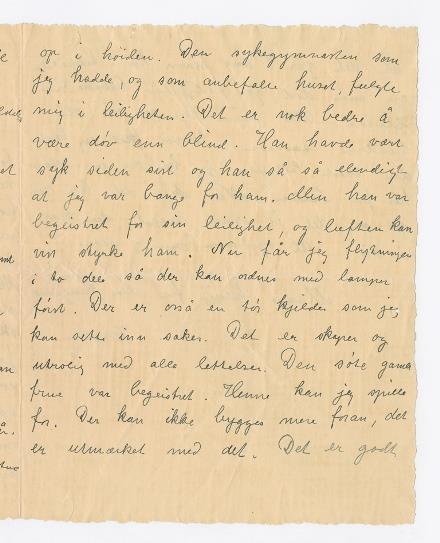 op i høiden. Den sykegymnasten som
jeg hadde, og som anbefalte huset, fulgte
mig i leiligheten. Det er nok bedre å
være døv enn blind. Han havde vært
syk siden sist og han så så elendig
at jeg var bange for ham. Men han var
begeistret for sin leilighet, og luften kan
vin styrke ham. Nu får jeg flytningen
i to dele så der kan ordnes med lamper
først. Der er også en tør kjelder som jeg
kan sette inn saker. Det er skaper og
utrolig med alle lettelser. Den søte gamle
frue var begeistret. Henne kan jeg spille
for. Der kan ikke bygges mere foran, det
er utmærket med det. Det er godt